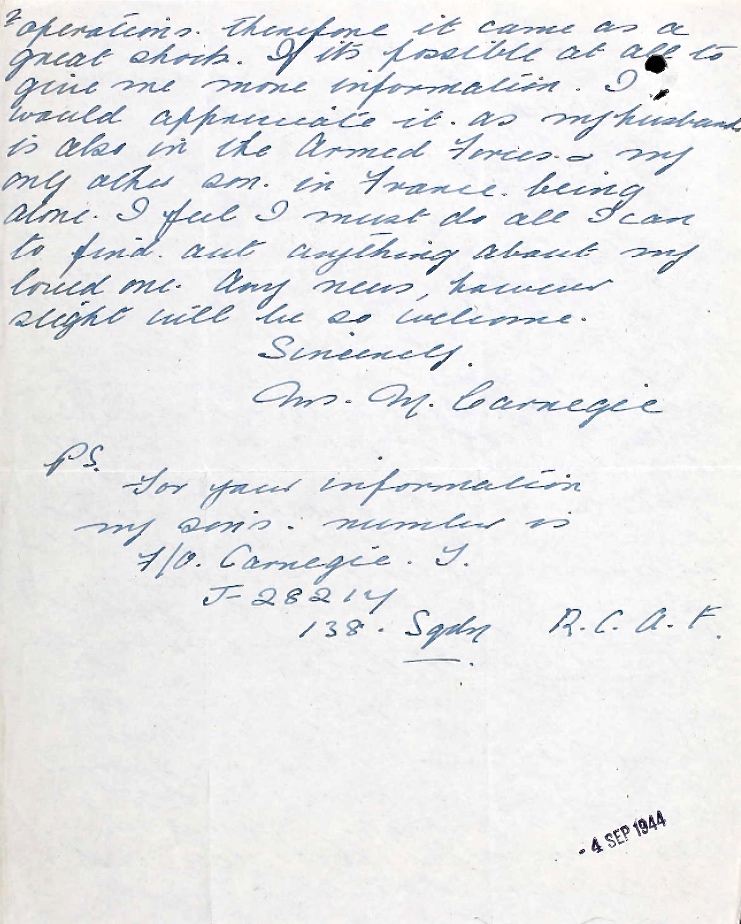 operations. therefore it came as a
great shock. If its possible at all to
give me more information. I
would appreciate it. as my husband
is also in the Armed Forces. & my
only other son. in France. being
alone. I feel I must do all I can
to find. out anything about my
loved one. Any news, however
slight will be so welcome.
Sincerely.
Mrs. M. Carnegie
PS.
For your information
my son's. number is
F/O. Carnegie. T.
J-28214
138. Sqdn R. C. A. F.
- 4 SEP 1944